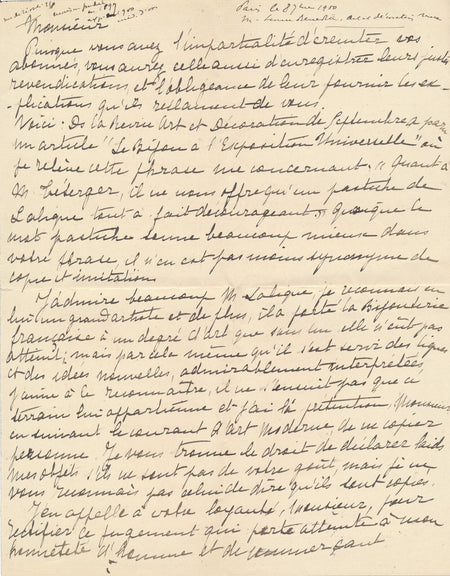 Paris le 8 1900
Monsieur
Puisque vous avez l'impartialité d'éreinter vos
abonnés, vous aurez celle aussi d'enregistrer leurs justes
revendications, et l'obligeance de leur fournir les ex-
plications qu'ils réclament de vous.
Voici. Ds la Revue Art et Décoration de Septembre a paru
un article "Le Bijou à l'Exposition Universelle" où
je relève cette phrase me concernant. "Quant à
M Teterger, il ne nous offre qu'un pastiche de
Lalique tout à fait décourageant." Quoique le
mot pastiche sonne beaucoup mieux dans
votre phrase, il n'en est pas moins synonyme de
copie et imitation.
J'admire beaucoup M Lalique, je reconnais en
lui un grand artiste et de plus, il a porté la Bijouterie
française à un degré d'art que sans lui elle n'eut pas
atteint; mais par cela même qu'il s'est servi des lignes
et des idées nouvelles, admirablement interprétées,
j'aime à le reconnaître, il ne s'ensuit pas que ce
terrain lui appartienne et j'ai la prétention, Monsieur,
en suivant le courant d'art moderne, de ne copier
personne. Je vous donne le droit de déclarer laids
mes objets s'ils ne sont pas de votre goût, mais je ne
vous reconnais pas celui de dire qu'ils sont copiés.
J'en appelle à votre loyauté, Monsieur, pour
rectifier ce jugement qui porte atteinte à mon
honnêteté d'homme et de commerçant